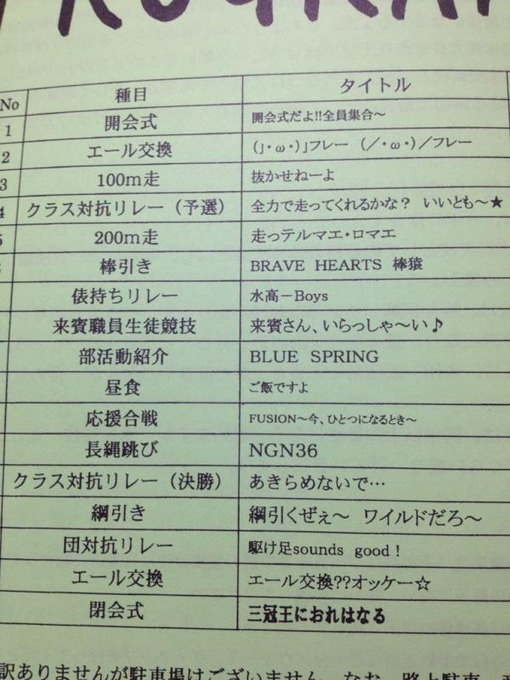 PROGRAM
No 種目 タイトル
1 開会式 開会式だよ!!全員集合～
2 エール交換 (｣・ω・)｣フレー (／・ω・)／フレー
3 100m走 抜かせねーよ
4 クラス対抗リレー（予選） 全力で走ってくれるかな？ いいとも～★
5 200m走 走っテルマエ・ロマエ
棒引き BRAVE HEARTS 棒猿
俵持ちリレー 水高－Boys
来賓職員生徒競技 来賓さん、いらっしゃ～い♪
部活動紹介 BLUE SPRING
昼食 ご飯ですよ
応援合戦 FUSION～今、ひとつになるとき～
長縄跳び NGN36
クラス対抗リレー（決勝） あきらめないで…
綱引き 綱引くぜぇ～ ワイルドだろ～
団対抗リレー 駆け足sounds good！
エール交換 エール交換??オッケー☆
閉会式 三冠王におれはなる
訳ありませんが駐車場はございません。なお、路上駐車、